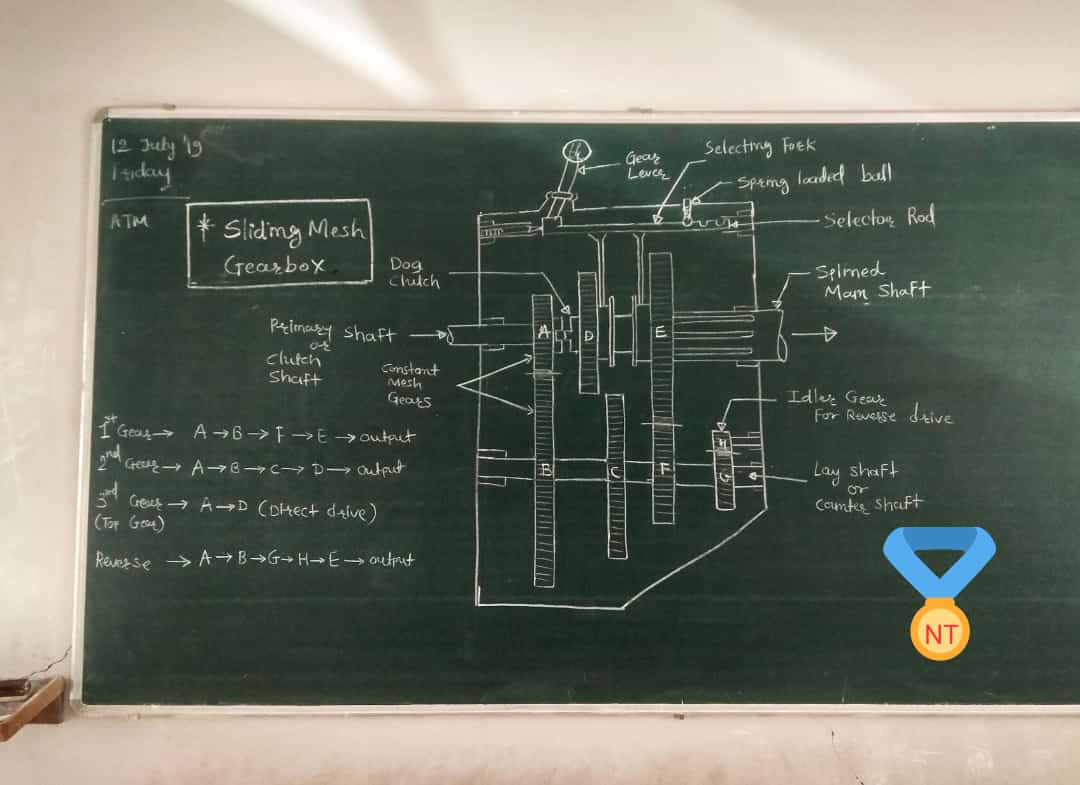 12 July '19
Friday
ATM
* Sliding Mesh
Gearbox
Gear
Lever
Selecting Fork
Spring loaded ball
Selector Rod
Dog
Clutch
Splined
Main Shaft
Primary Shaft
or
Clutch
Shaft
Constant
Mesh
Gears
A
D
E
Idler Gear
For Reverse drive
H
B
C
F
G
Lay shaft
or
Counter shaft
1st Gear → A → B → F → E → output
2nd Gear → A → B → C → D → output
3rd Gear → A → D (Direct drive)
(Top Gear)
Reverse → A → B → G → H → E → output
NT